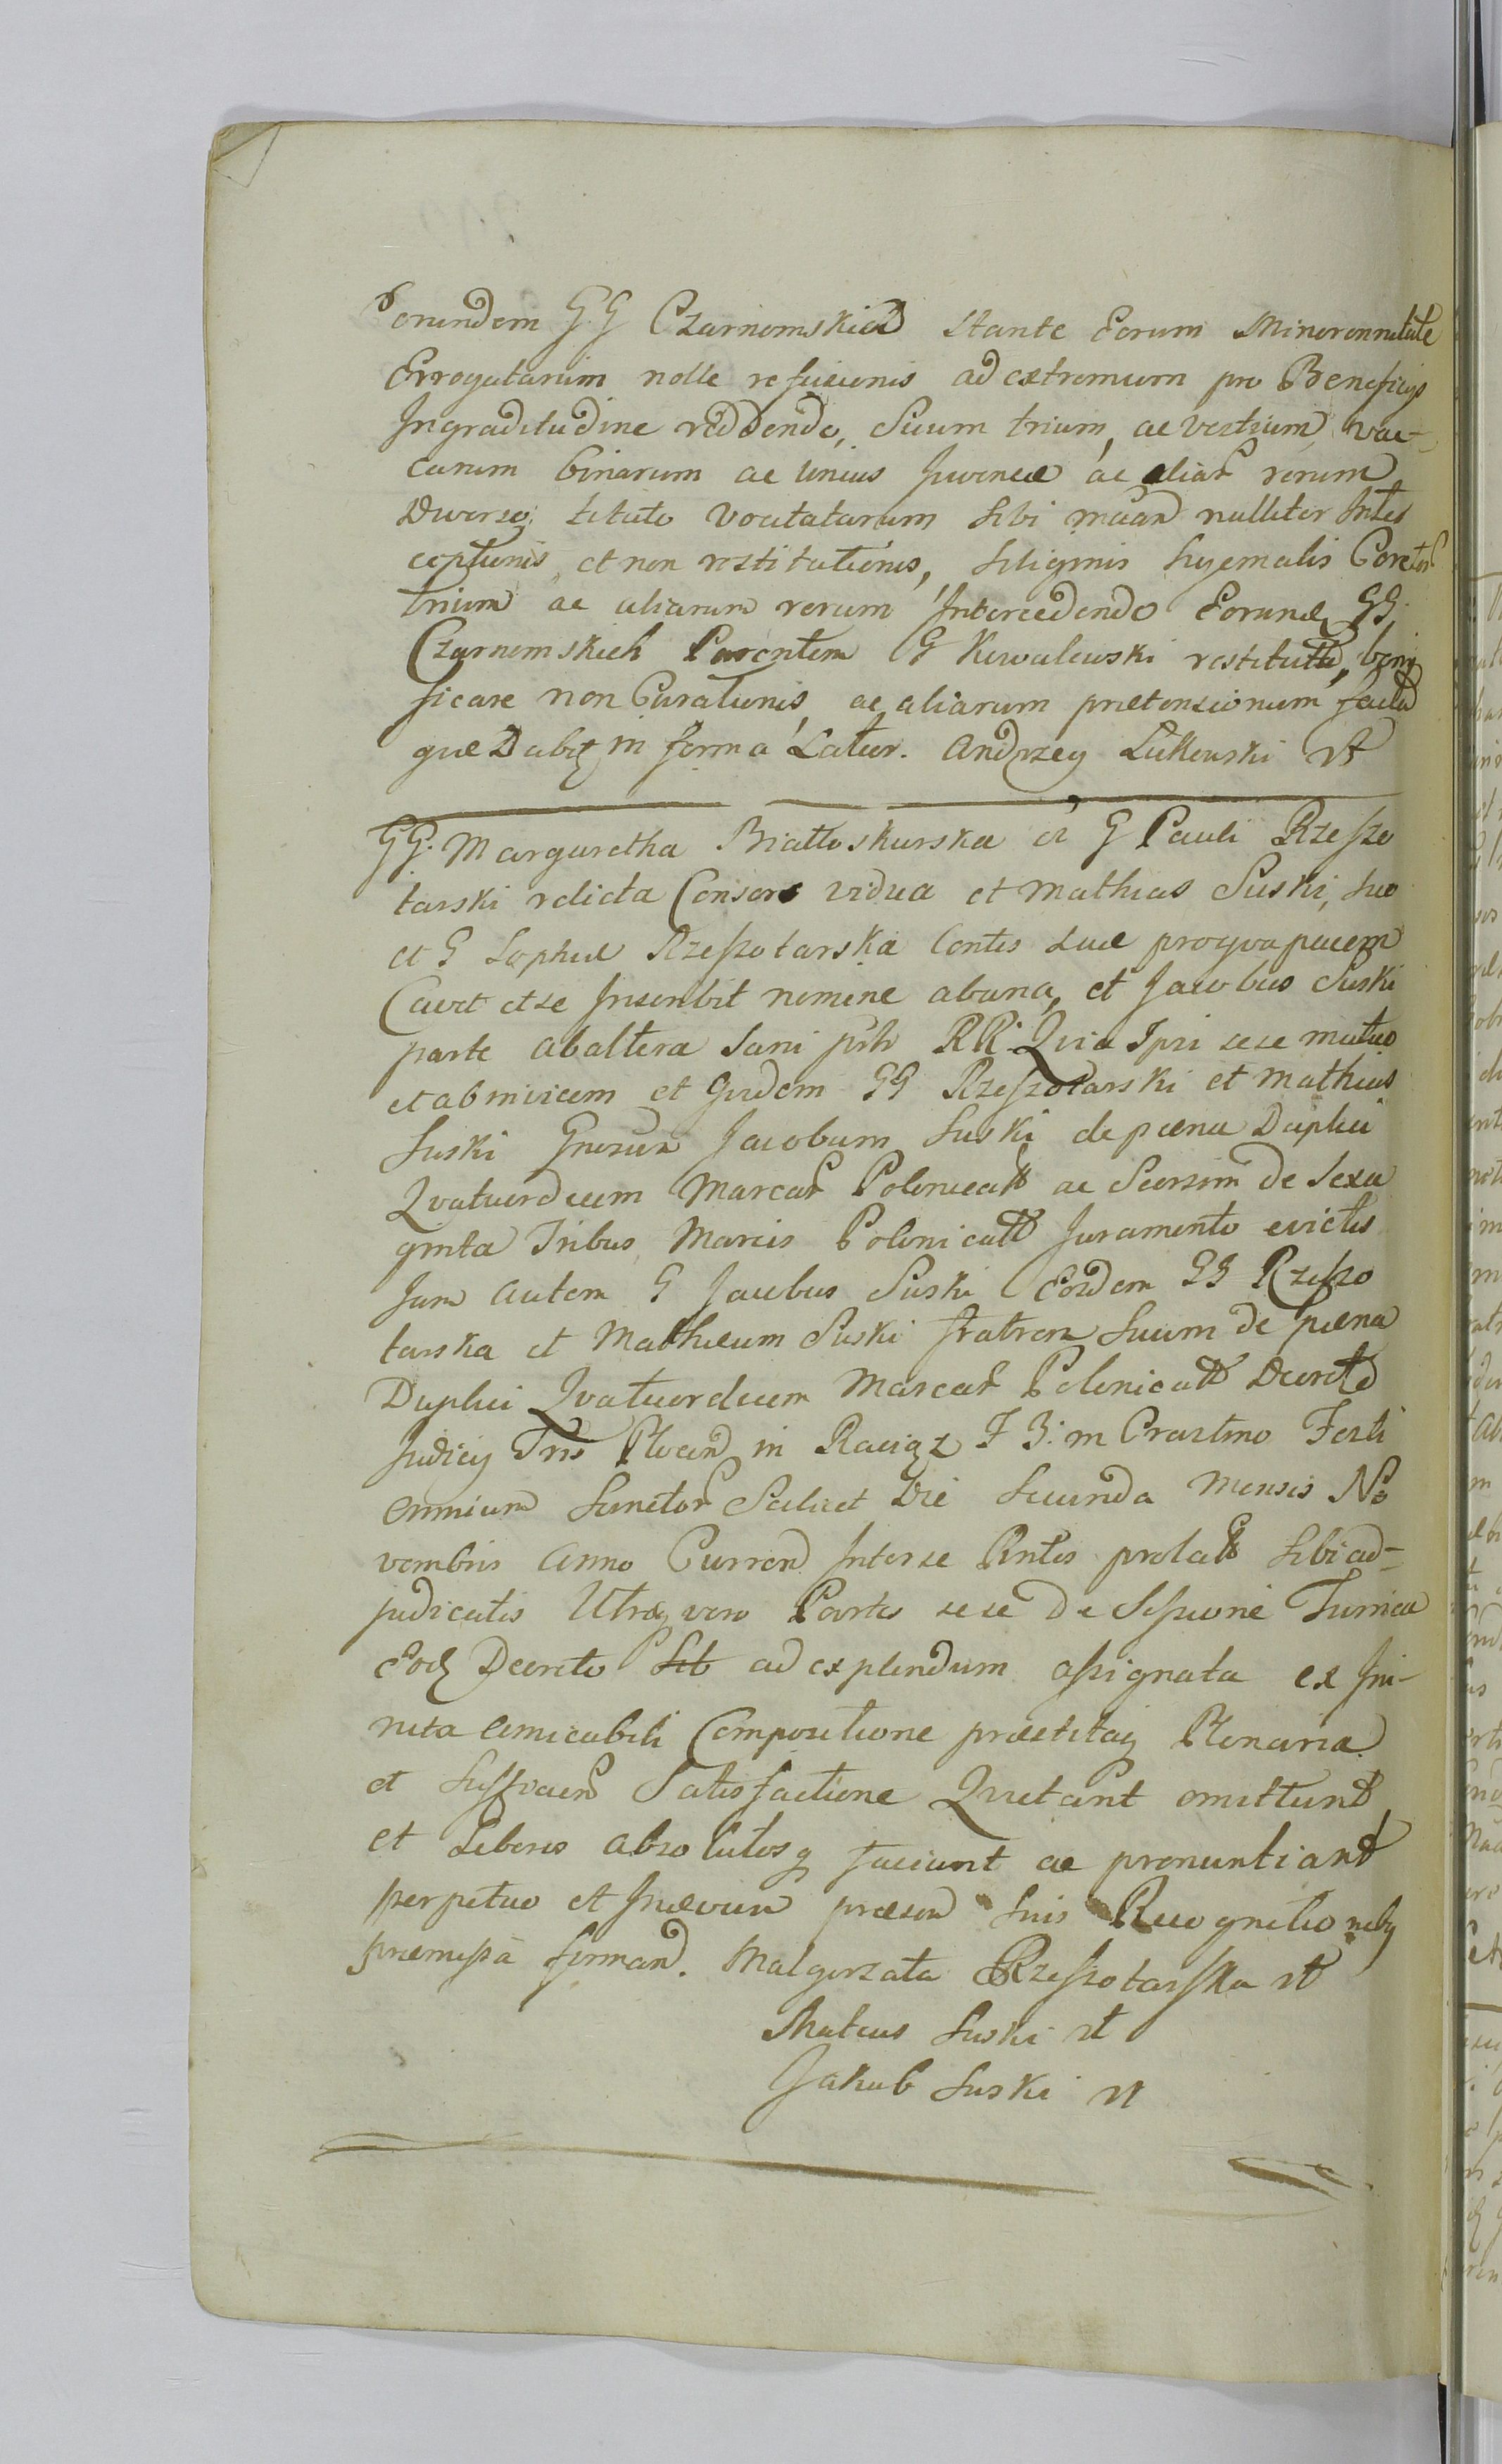 eorundem GG Czarnomskich stante Eorum Minorennitate
Errogatarum nolle refusionis ad extremum pro Beneficijs
Ingraditudine reddendo, Suum trium, ac vestium, vac-
carum binarum ac unius Juvencæ ac aliar rerum
Diverso titulo vocitatarum sibi nulliter Inter
ceptionis, et non restitutionis, Siliginis hyemalis Coretor
trium ac aliarum rerum Intercedendo Eorund GG
Czarnomskich Parentem G Kowalewski restitutu, boni
ficare non Curationis, ac aliarum prætensionum
que Dabit in forma Latior. Andrzey Łukowski mp
GG. Margaretha Białłoskurska G Pauli Rzeszo
tarski relicta Consors vidua et Mathias Suski, suo
et G Sophiæ Rzeszotarska Contis suæ pro qva pacem
Cavet et se Inscribit nomine ab una, et Jacobus Suski
parte ab altera Sani RR Qvia Ipsi sese mutuo
et ab invicem et qvidem GG Rzeszotarski et Mathias
Suski Gnosum Jacobum Suski de pœna Duplici
Qvatuordecim Marcar Polonicatt ac Seorsim de Sexa
ginta Tribus Marcis Polonicatt Juramento evictis
Jam autem G Jacobus Suski Eosdem GG Rzeszo
tarska et Mathæum Suski fratrem Suum de pœna
Duplici Qvatuordecim Marcar Polonicatt Decreto
Judicij Tris Plocen in Raciąz F 3: in Crastino Festi
omnium Sanctor Scilicet Die Secunda Mensis No
vembris Anno Curren Inter se Ptes prolatt Sibi ad-
judicatis Utræq vero Partes sese De Sessione Turrica
Eod Decreto Sib ad explendum assignata ex Ini-
nita Amicabili Compositione præstitaq Plenaria
et Sufficien Satisfactione Qvietant omittunt
et Liberos absolutosq faciunt ac pronuntiant
perpetuo et Inævum præsen Suis Recognitionibq
præmissa firman. Małgorzata Rzeszotarska mp
Mateus Suski mp
Jakub Suski mp